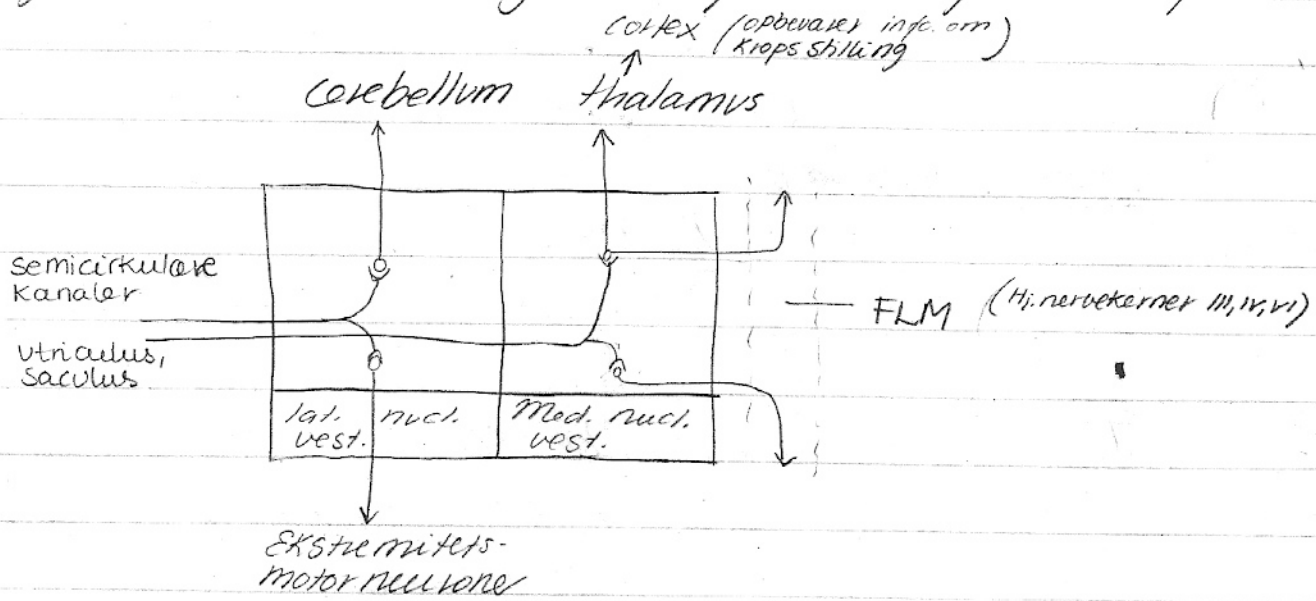 cortex (opbevarer info. om
kropsstilling)
cerebellum thalamus
semicirkulære
kanaler
utriculus,
saculus
FLM (Hj.nervekerner III, IV, VI)
lat. nucl.
vest.
Med. nucl.
vest.
Ekstremitets-
motorneurone